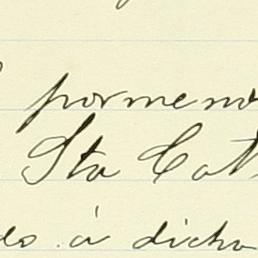 pormeno
Sta Cat
do á dicho